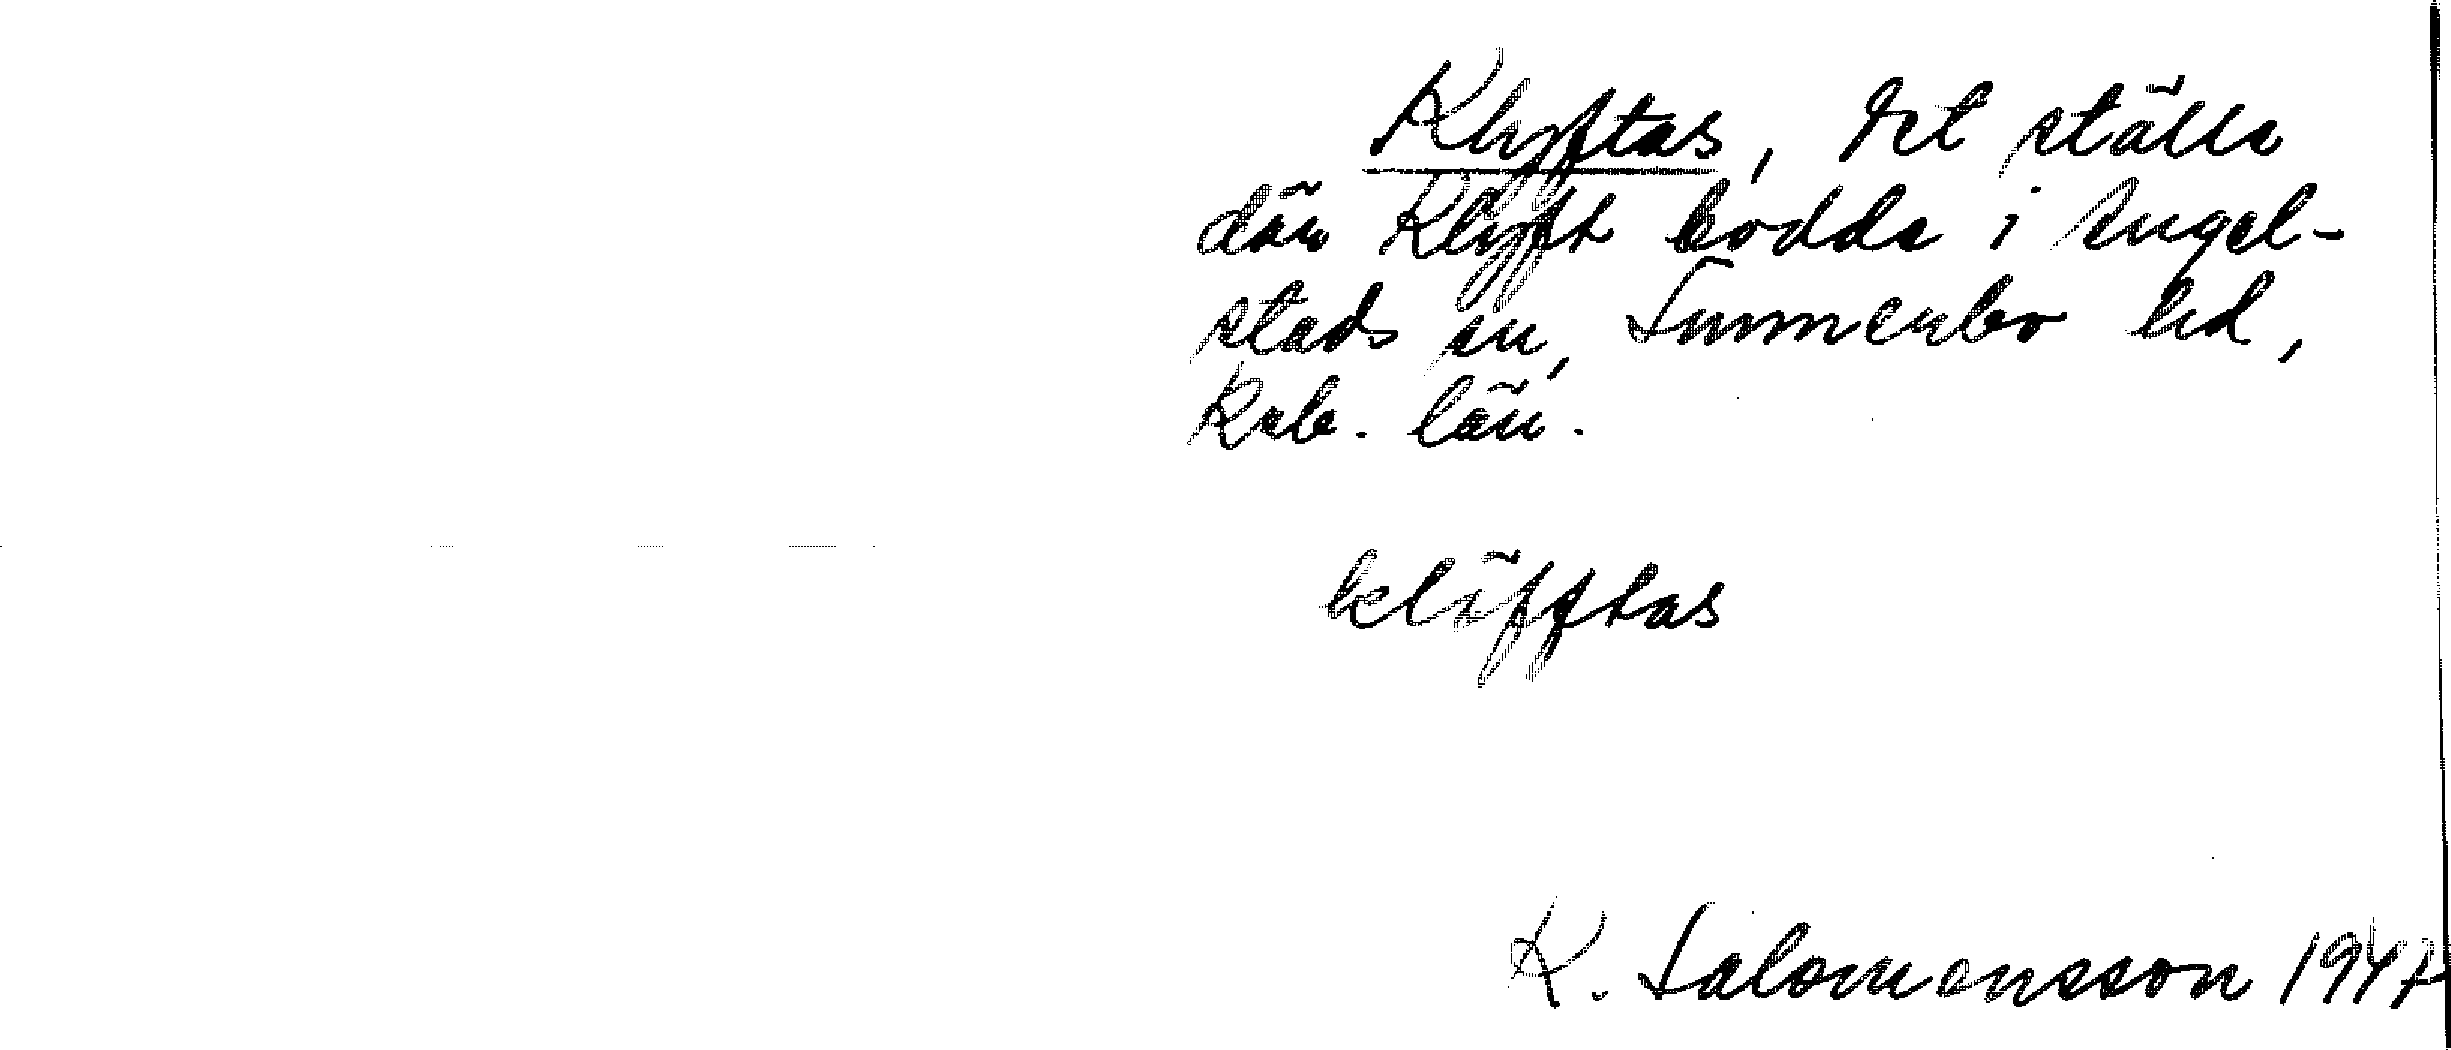 Klyftas, det ställe
där Klyft bodde i Angel-
stads sn, Sunnerbo hd,
Krb. län.
klöfftas
K. Salomonsson 1947